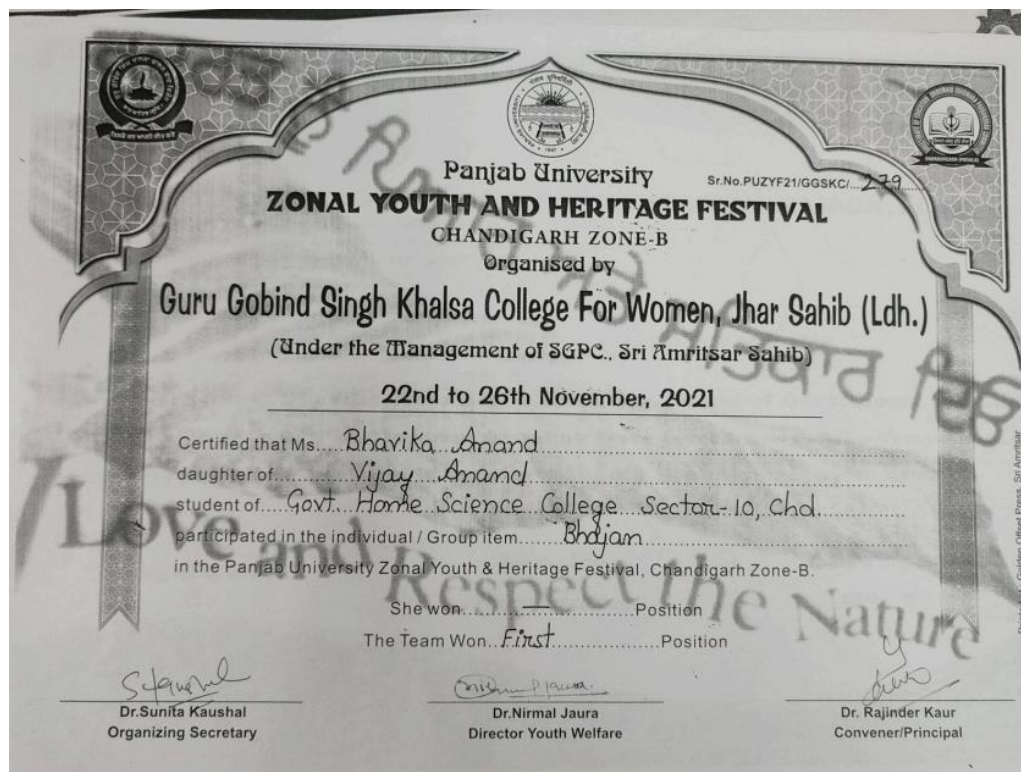 Panjab University
Sr.No.PUZYF21/GGSKC/....279......
ZONAL YOUTH AND HERITAGE FESTIVAL
CHANDIGARH ZONE-B
Organised by
Guru Gobind Singh Khalsa College For Women, Jhar Sahib (Ldh.)
(Under the Management of SGPC., Sri Amritsar Sahib)
22nd to 26th November, 2021
Certified that Ms.....Bhavika Anand
daughter of............Vijay Anand
student of....Govt. Home Science College Sector-10, Chd.
participated in the individual / Group item.......Bhajan
in the Panjab University Zonal Youth & Heritage Festival, Chandigarh Zone-B.
She won..........—..............Position
The Team Won..First..................Position
ਸਤਿਕਾਰ ਦਿਉ
Love and Respect the Nature
Dr.Sunita Kaushal
Organizing Secretary
Dr.Nirmal Jaura
Director Youth Welfare
Dr. Rajinder Kaur
Convener/Principal
Golden Offset Press, Sri Amritsar